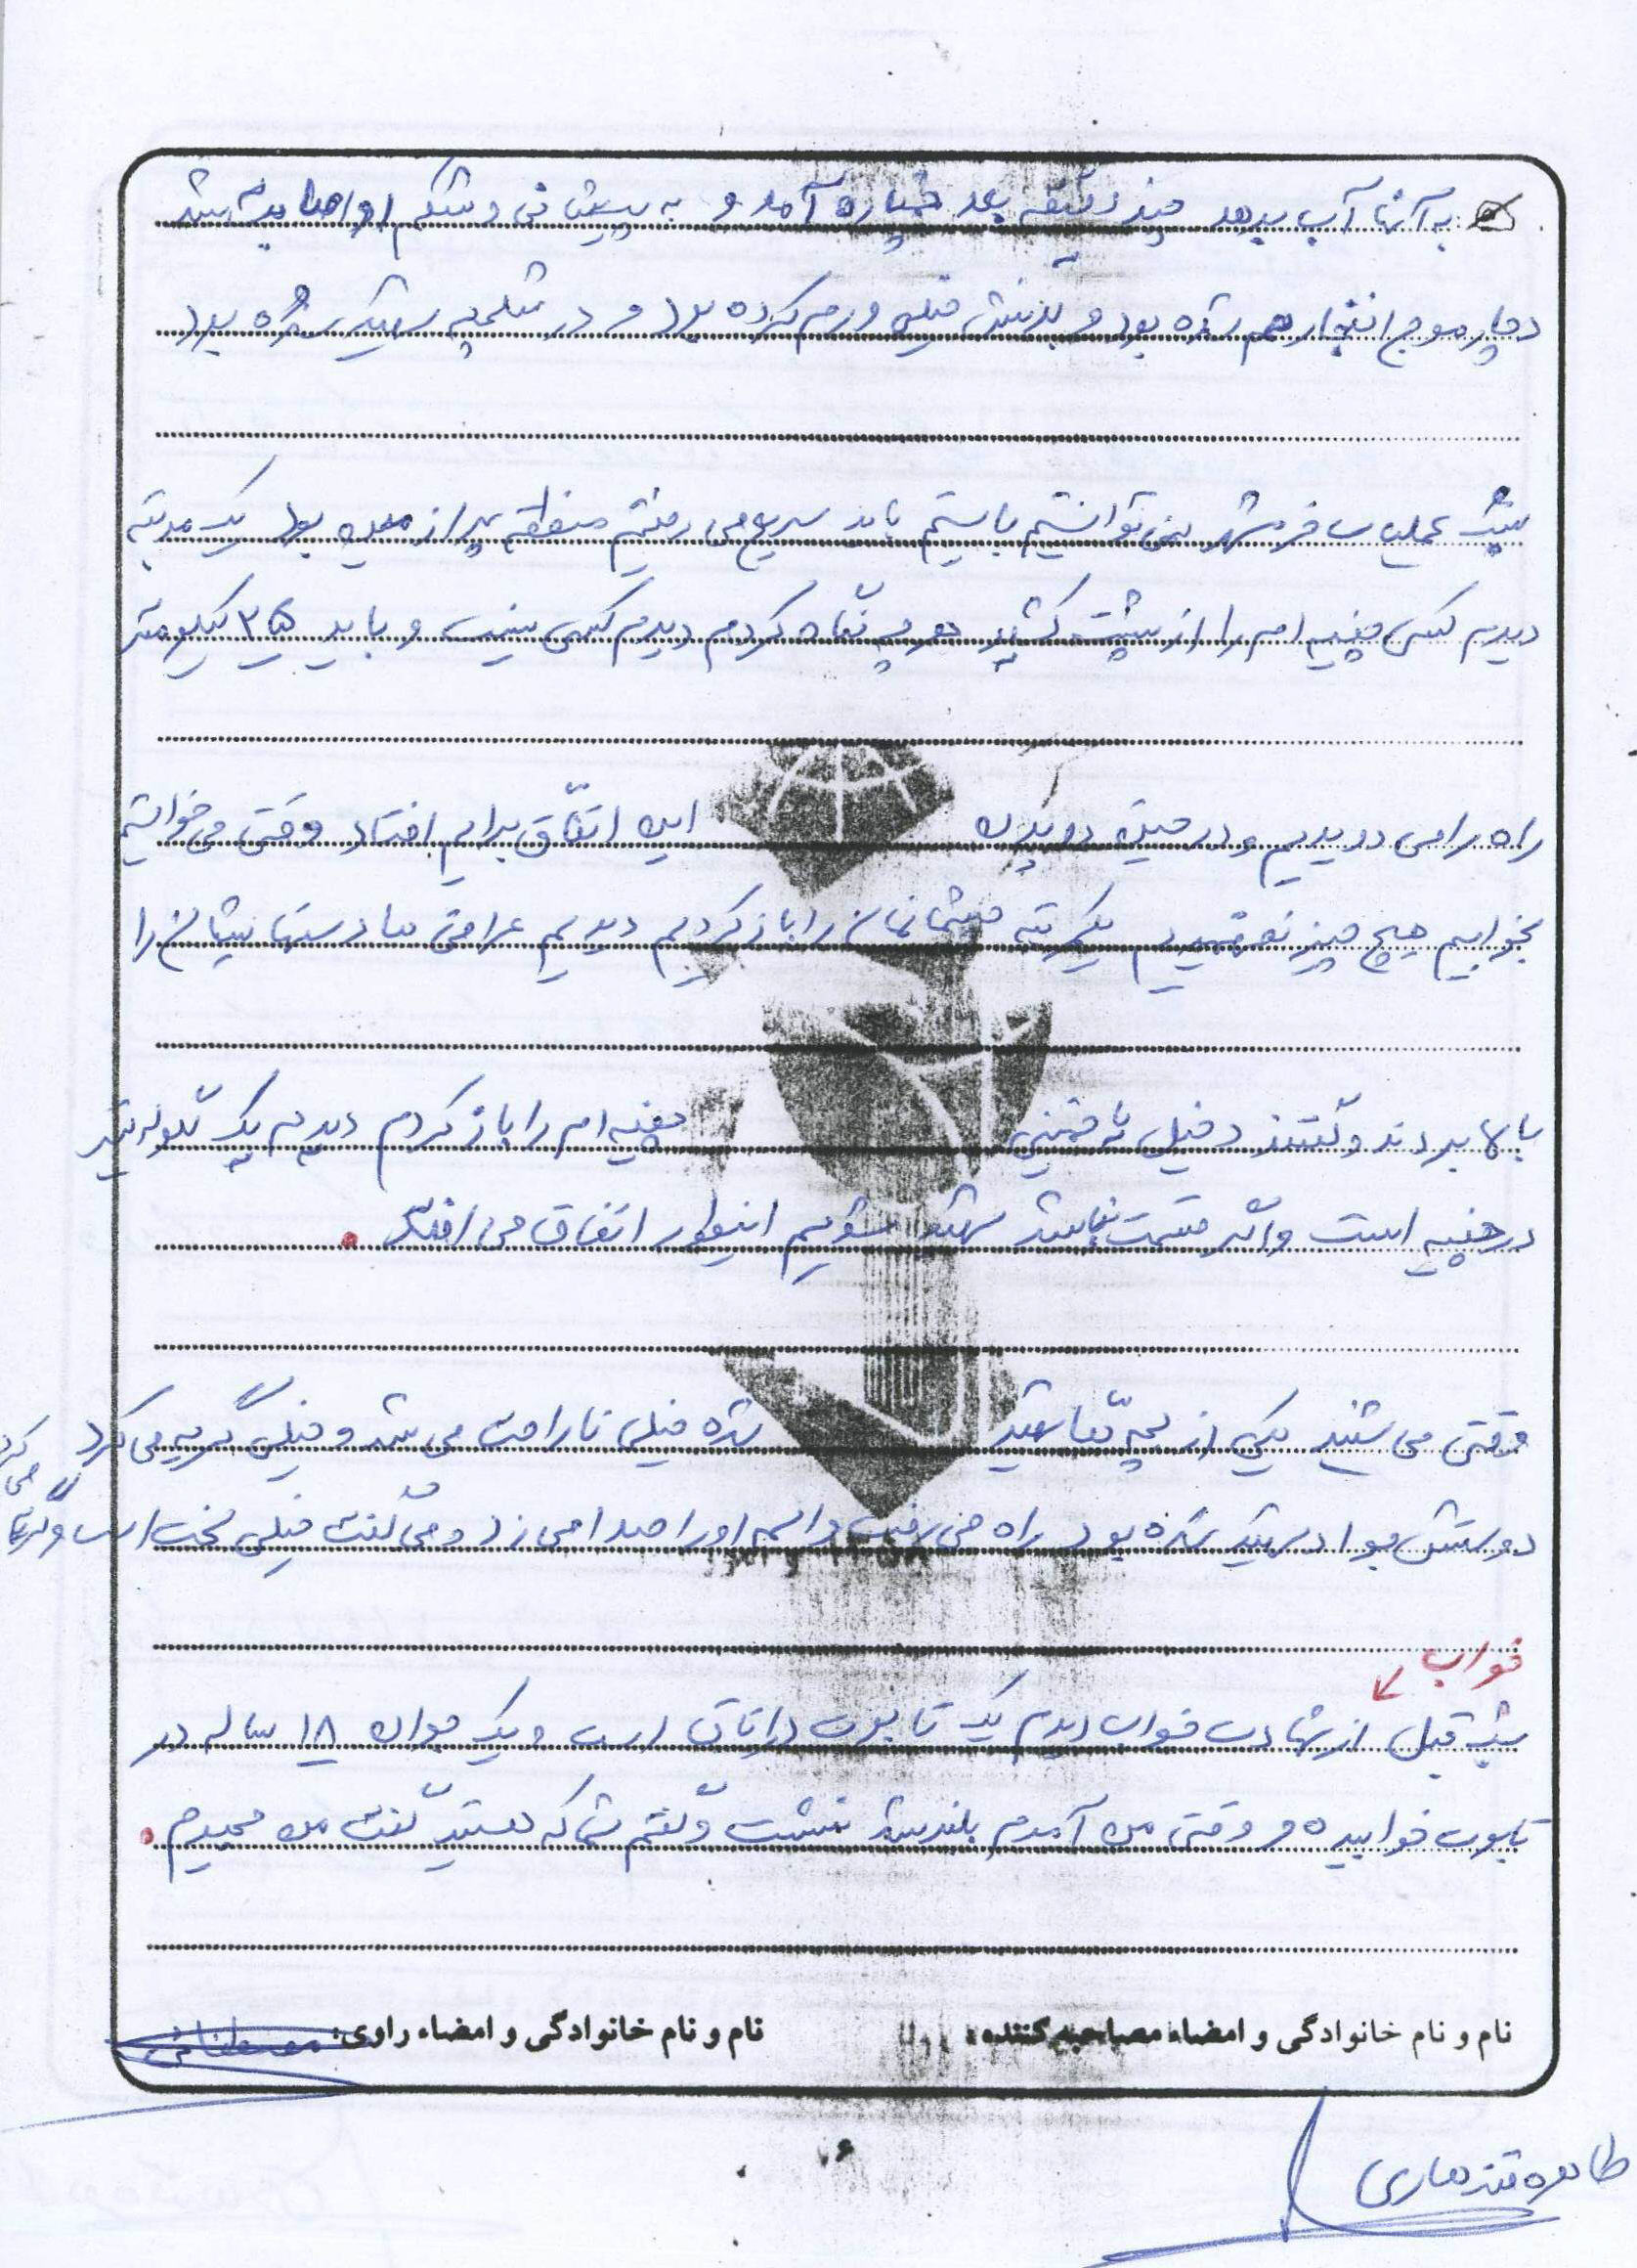 به آنها آب بدهد چند دقیقه بعد خمپاره آمد و به پیشانی و شکم او اصابت شد
دچار موج انفجار هم شده بود و بدنش خیلی ورم کرده بود و در شلمچه شهید شده بود
شب عملیات خرمشهر نمی توانستیم بایستیم باید سریع می رفتیم منطقه پر از مین بود یک مرتبه
دیدم کسی چفیه ام را از پشت کشید نگاه کردم دیدم کسی نیست و باید ۲۵ کیلومتر
راه را می دویدیم و در حین دویدن این اتفاق برایم افتاد وقتی می خواستیم
بخوابیم هیچ چیز نفهمیدیم یکمرتبه چشمانمان را باز کردیم دیدیم عراقی ها دستهایشان را
بالا بردند و گفتند دخیل یا خمینی چفیه ام را باز کردم دیدم یک گلوله تیر
در چفیه است و اگر قسمت نباشد شهید شویم اینطور اتفاق می افتد .
وقتی می شنید یکی از بچه ها شهید شده خیلی ناراحت می شد و خیلی گریه می کرد
دوستش جواد شهید شده بود راه می رفت و اسم او را صدا می زد و می گفت خیلی سخت است و گریه
می کرد
خواب
شب قبل از شهادت خواب دیدم یک تابوت در اتاق است و یک جوان ۱۸ ساله در
تابوت خوابیده و وقتی من آمدم بلند شد نشست و گفتم شما که هستید گفت من مجیدم .
نام و نام خانوادگی و امضاء مصاحبه کننده: نام و نام خانوادگی و امضاء راوی:
۶
طاهره قندهاری